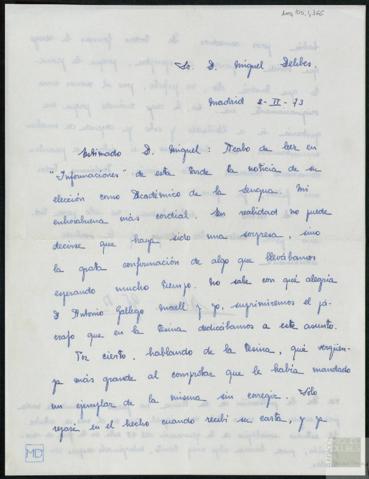 Sr. D. Miguel Delibes.
Madrid 2-II-73
Estimado D. Miguel: Acabo de leer en
"Informaciones" de esta tarde la noticia de su
elección como Académico de la Lengua. Mi
enhorabuena más cordial. En realidad no puede
decirse que haya sido una sorpresa, sino
la grata confirmación de algo que llevábamos
esperando mucho tiempo. No sabe con qué alegría
D. Antonio Gallego Morell y yo, suprimiremos el pá-
rrafo que en la Tesina dedicábamos a este asunto.
Por cierto, hablando de la Tesina, qué vergüen-
za más grande al comprobar que le había mandado
un ejemplar de la misma sin corregir. Sólo
reparé en el hecho cuando recibí su carta, y ya
MD